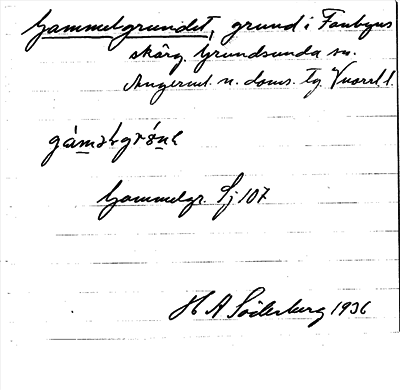 Gammelgrundet, grund i Fanbyns
skärg. Grundsunda sn.
Ångerml. n. doms. Tg. Vnorrl. l.
Gammelgr. Sj 107
H A Söderberg 1936